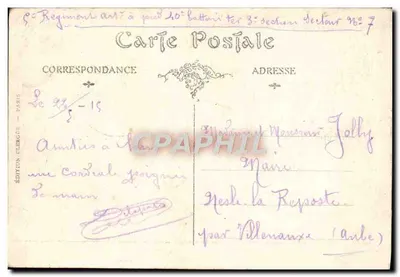 5e Régiment art à pied 40e batterie ter 3e section Secteur No 7
Carte Postale
CORRESPONDANCE
ADRESSE
Le 23/5-15
Amitiés à
une cordiale poignée
de main
Madame et Monsieur Jolly
Maire
Nesle la Reposte
par Villenauxe (Aube)
EDITION
PARIS
CPAPHIL